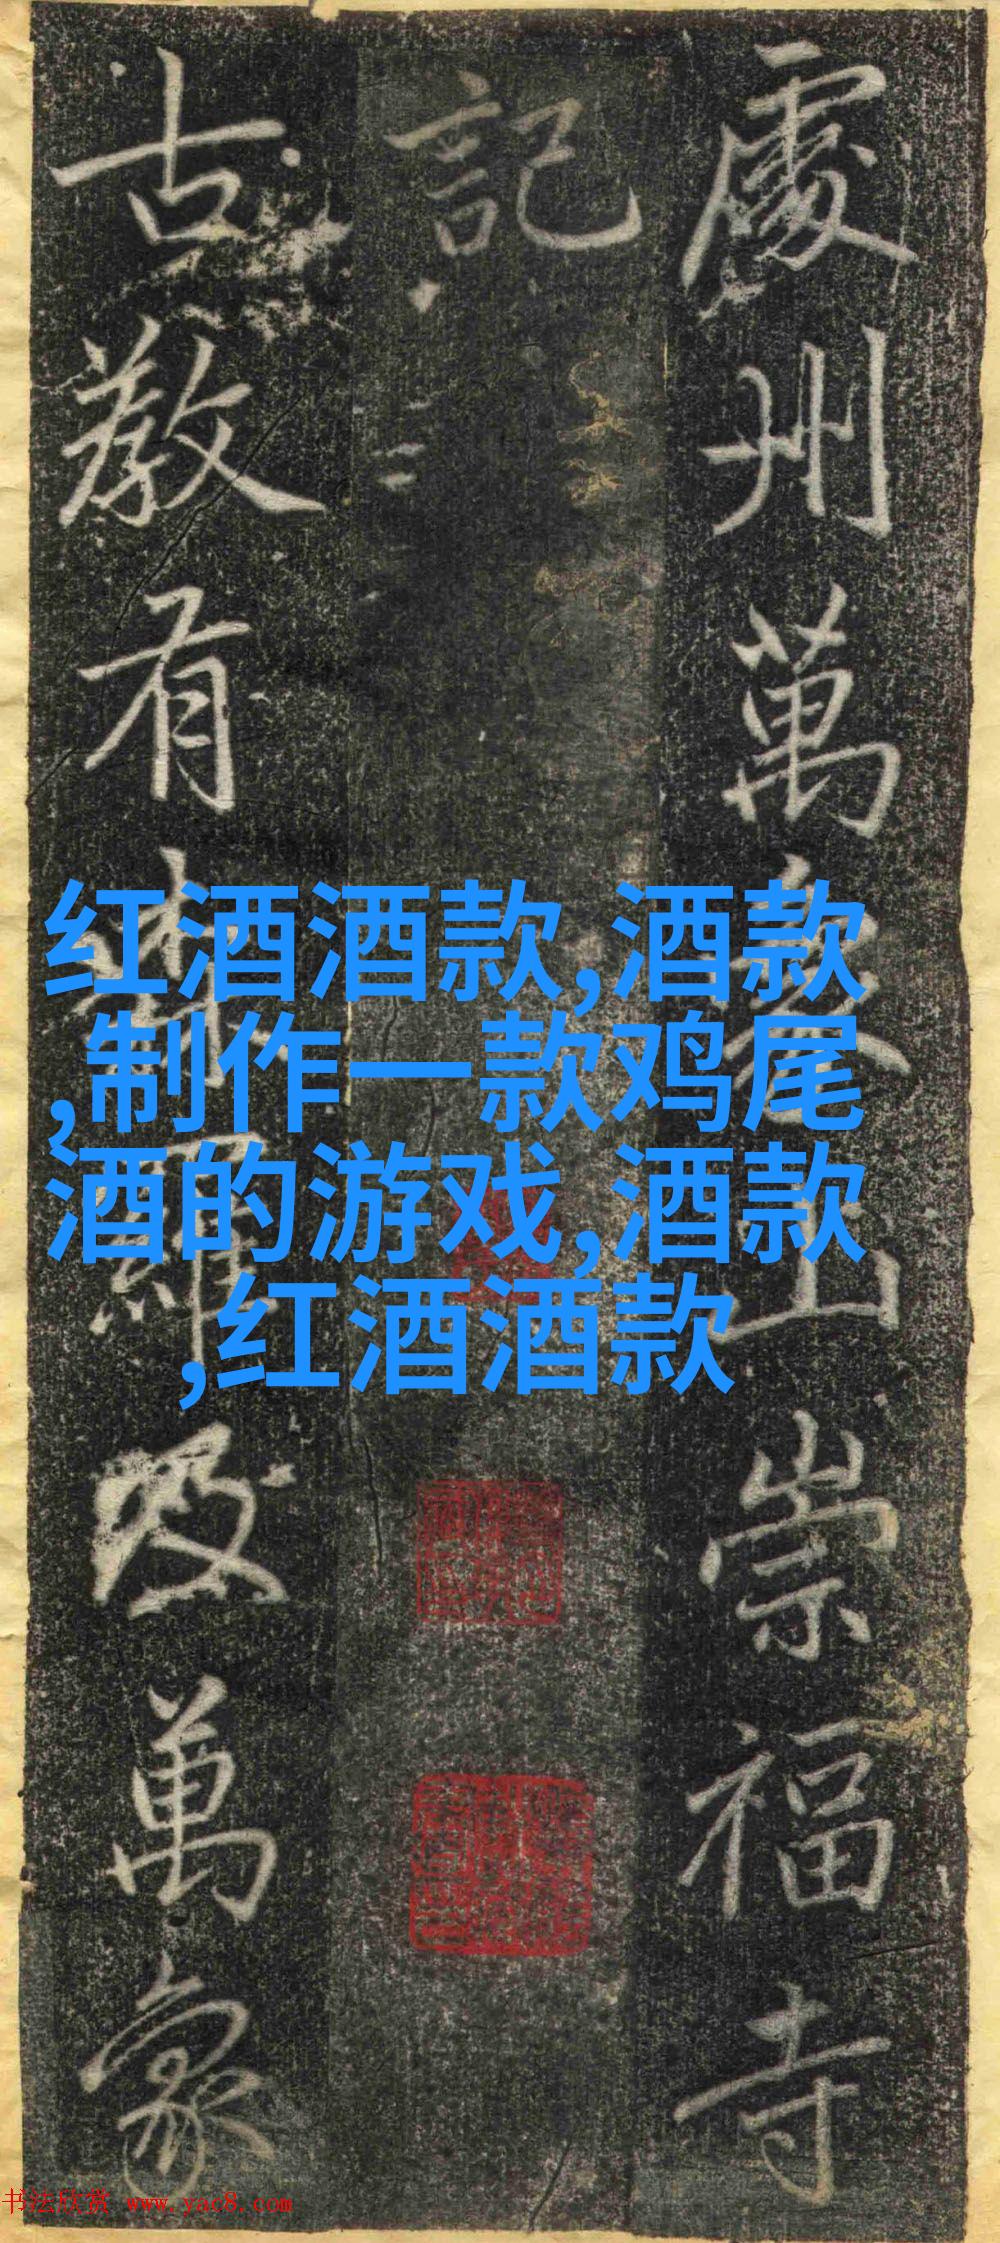 處州萬象山崇福寺
記
古教有森羅及萬象
红酒酒款,酒款
,制作一款鸡尾
酒的游戏,酒款
,红酒酒款
书法欣赏 www.yac8.com